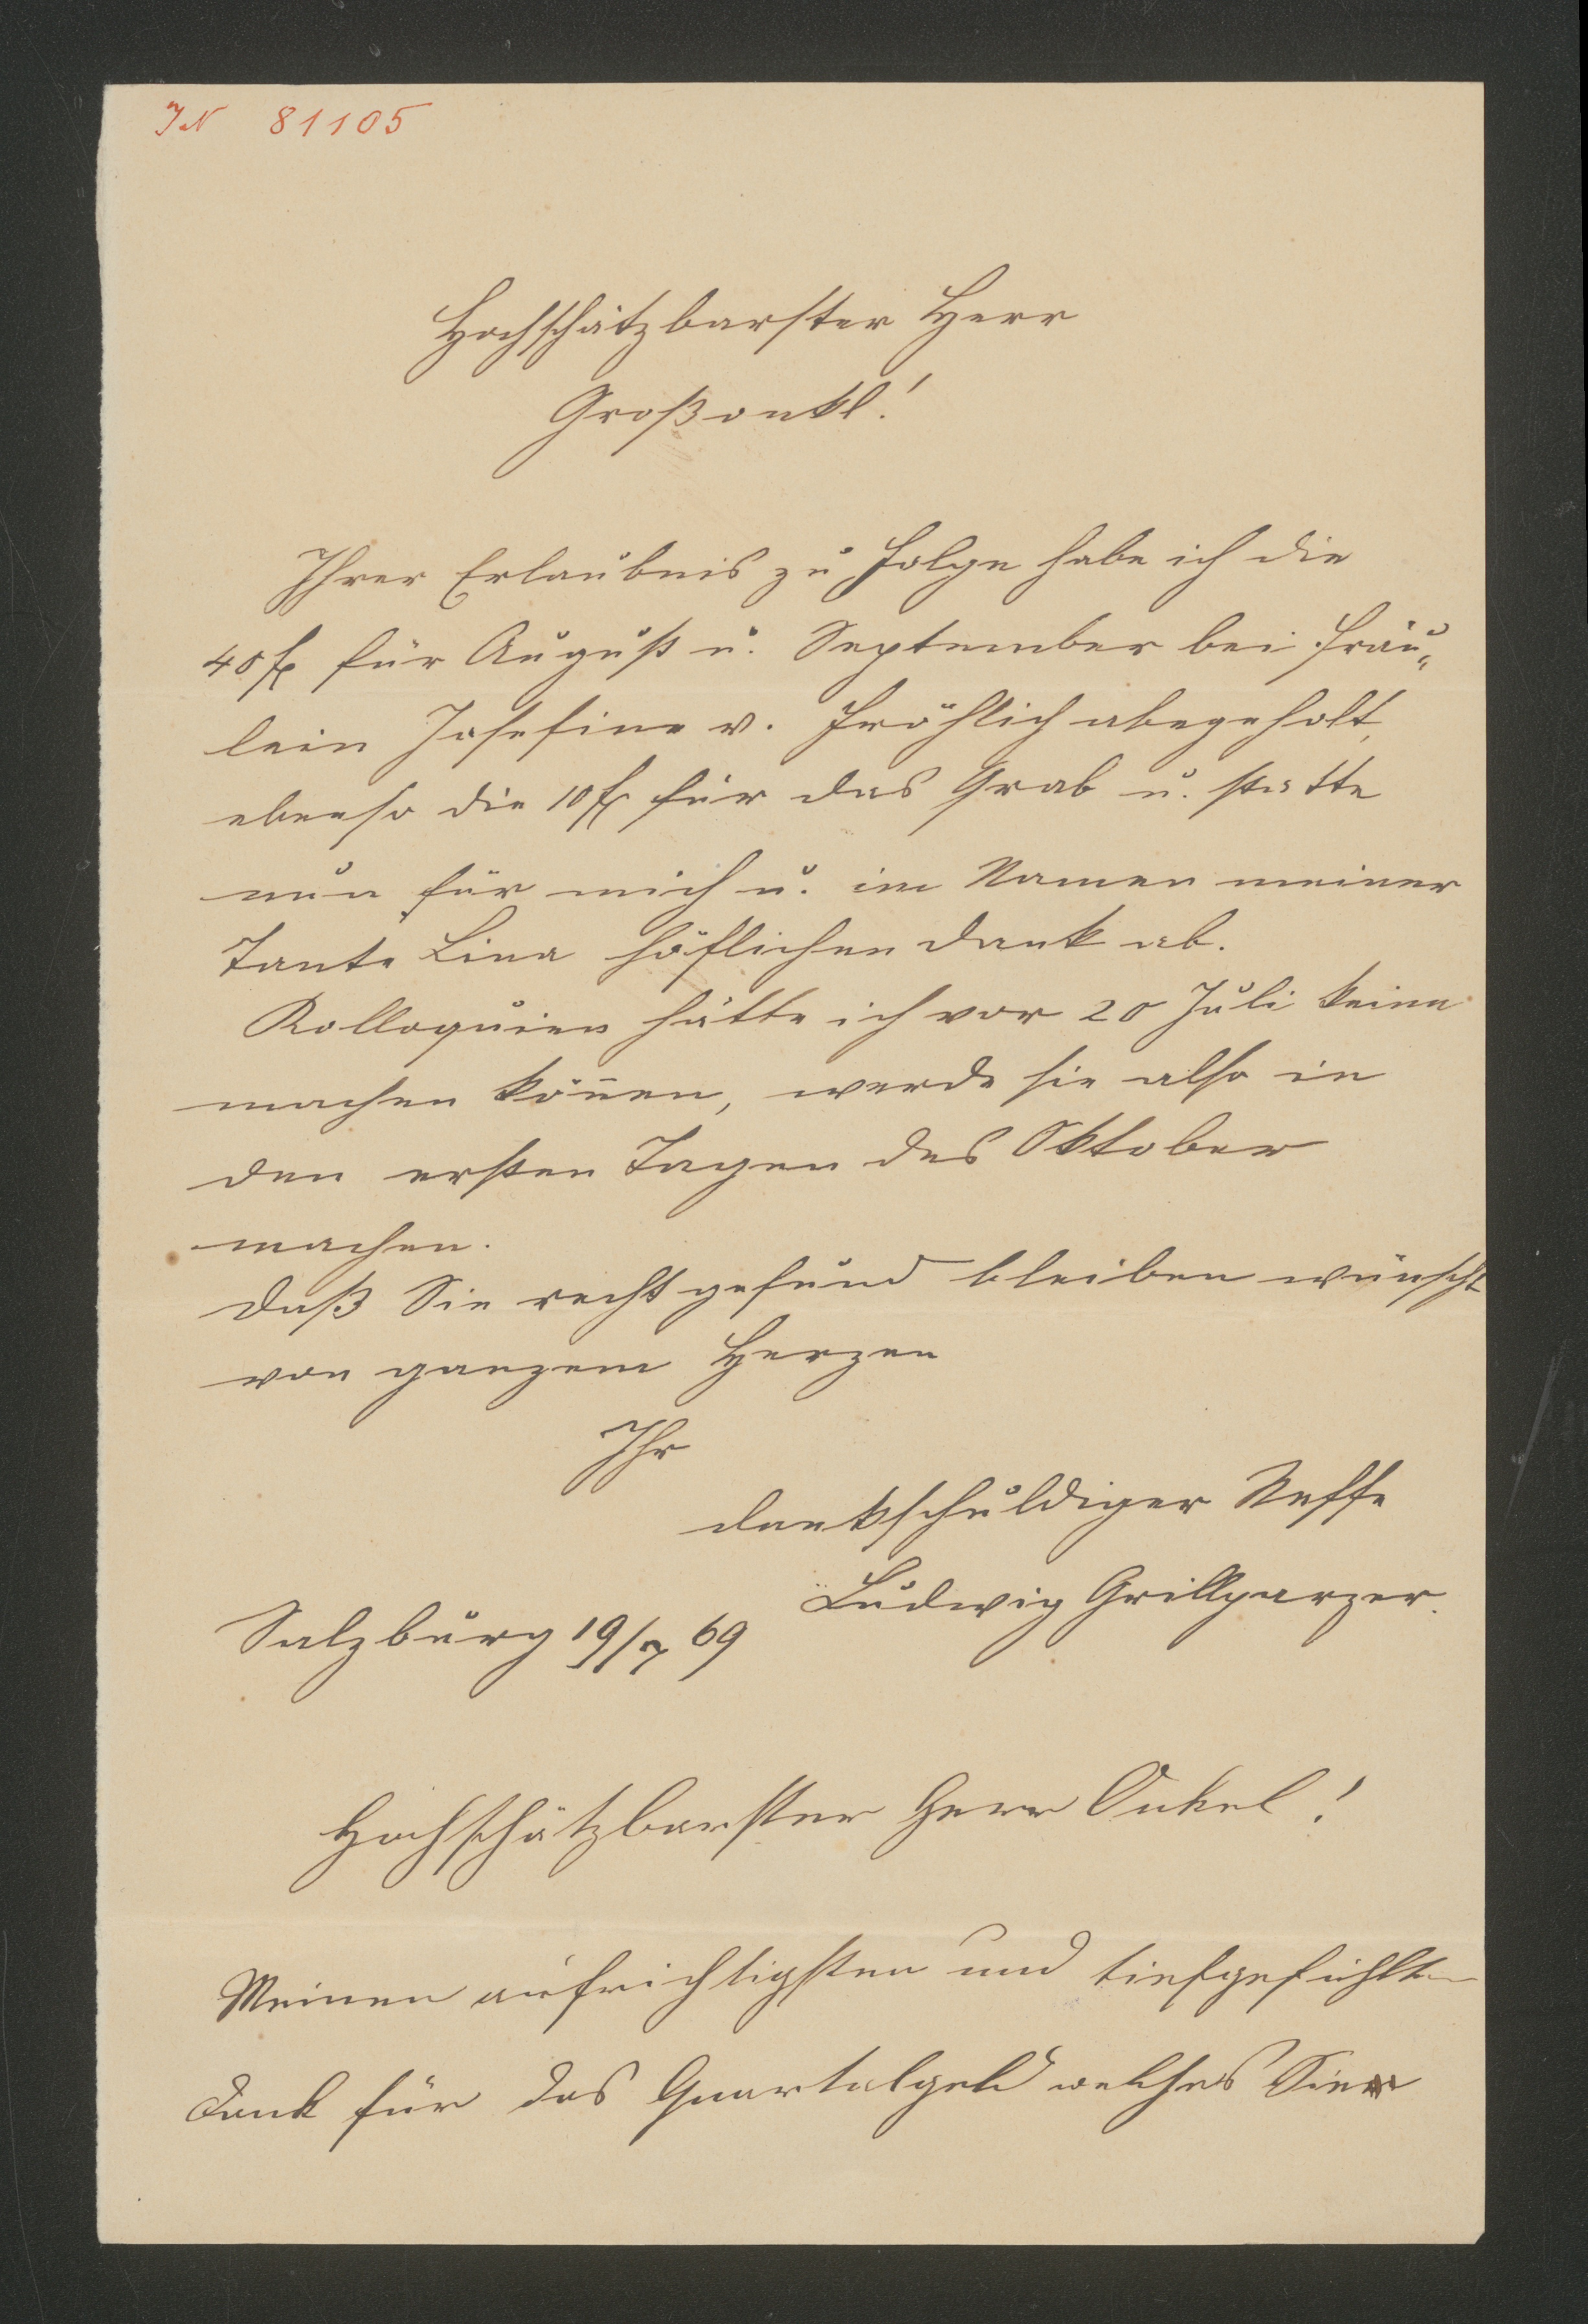 IN 81105
Hochschätzbarster Herr
Großonkl!
Ihrer Erlaubnis zu Folge habe ich die
40 fl für August u. September bei Fräu„
lein Josefine v. Fröhlich abgeholt,
ebenso die 10 fl für das Grab u. statte
nun für mich u. im Namen meiner
Tante Lina höflichen Dank ab.
Kolloquien hätte ich vor 20 Juli keine
machen können, werde sie also in
den ersten Tagen des Oktober
machen.
Daß Sie recht gesund bleiben wünscht
von ganzem Herzen
Ihr
dankschuldiger Neffe
Ludwig Grillparzer.
Salzburg 19/7 69
Hochschätzbarster Herr Onkel!
Meinen aufrichtigsten und tiefgefühlten
Dank für das Quartalgeld welches Sie